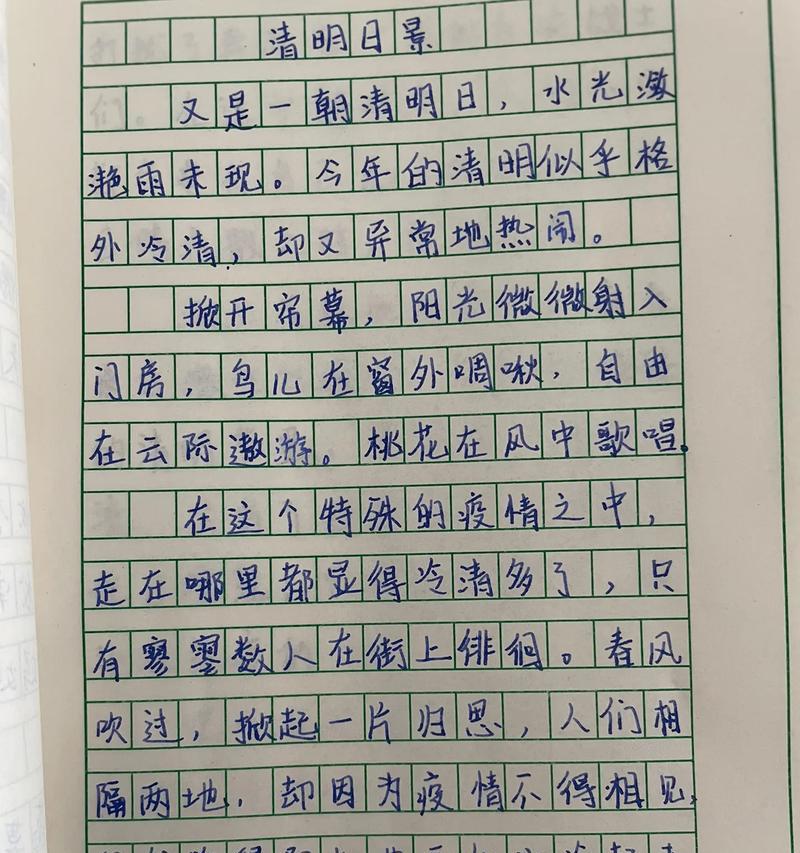 清明日景
又是一朝清明日，水光潋
滟雨未现。今年的清明似乎格
外冷清，却又异常地热闹。
掀开帘幕，阳光微微射入
门房，鸟儿在窗外啁啾，自由
在云际遨游。桃花在风中歌唱。
在这个特殊的疫情之中，
走在哪里都显得冷清多了，只
有寥寥数人在街上徘徊。春风
吹过，掀起一片归思，人们相
隔两地，却因为疫情不得相见，